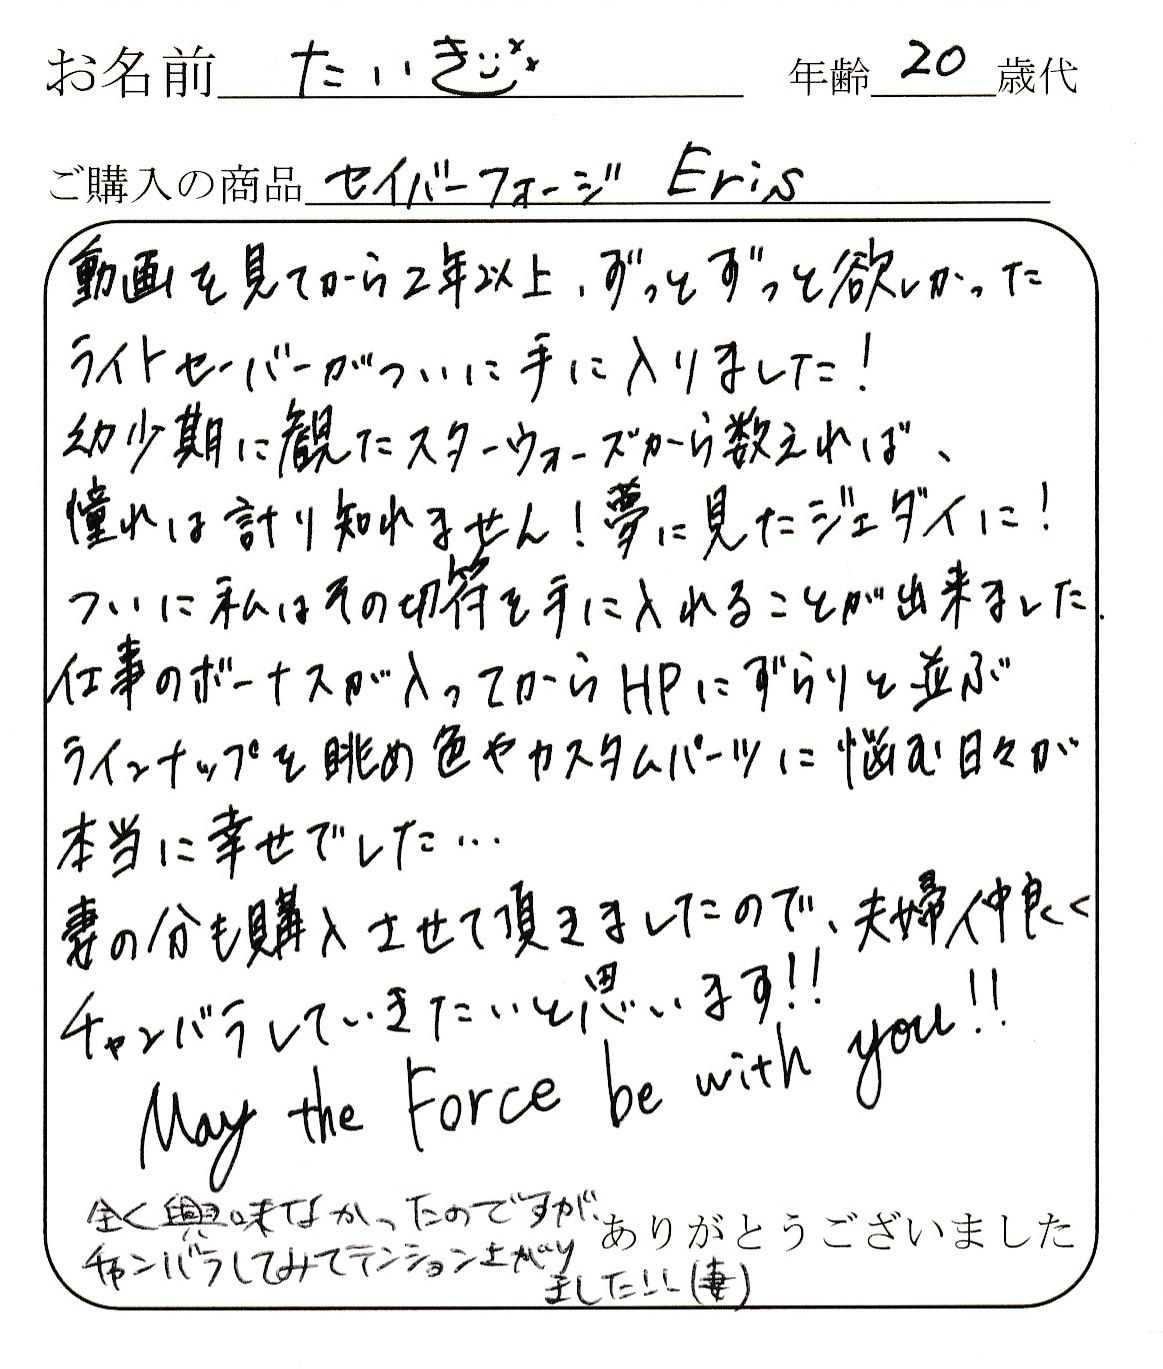 お名前 たいき 年齢 20 歳代
ご購入の商品 セイバーフォージ Eris
動画を見てから2年以上、ずっとずっと欲しかった
ライトセーバーがついに手に入りました!
幼少期に観たスターウォーズから数えれば、
憧れは計り知れません!夢に見たジェダイに!
ついに私はその切符を手に入れることが出来ました.
仕事のボーナスが入ってからHPにずらりと並ぶ
ラインナップを眺め色やカスタムパーツに悩む日々が
本当に幸せでした…
妻の分も購入させて頂きましたので、夫婦仲良く
チャンバラしていきたいと思います!!
May the Force be with you!!
全く興味なかったのですが、
チャンバラしてみてテンション上がり
ました!!(妻)
ありがとうございました